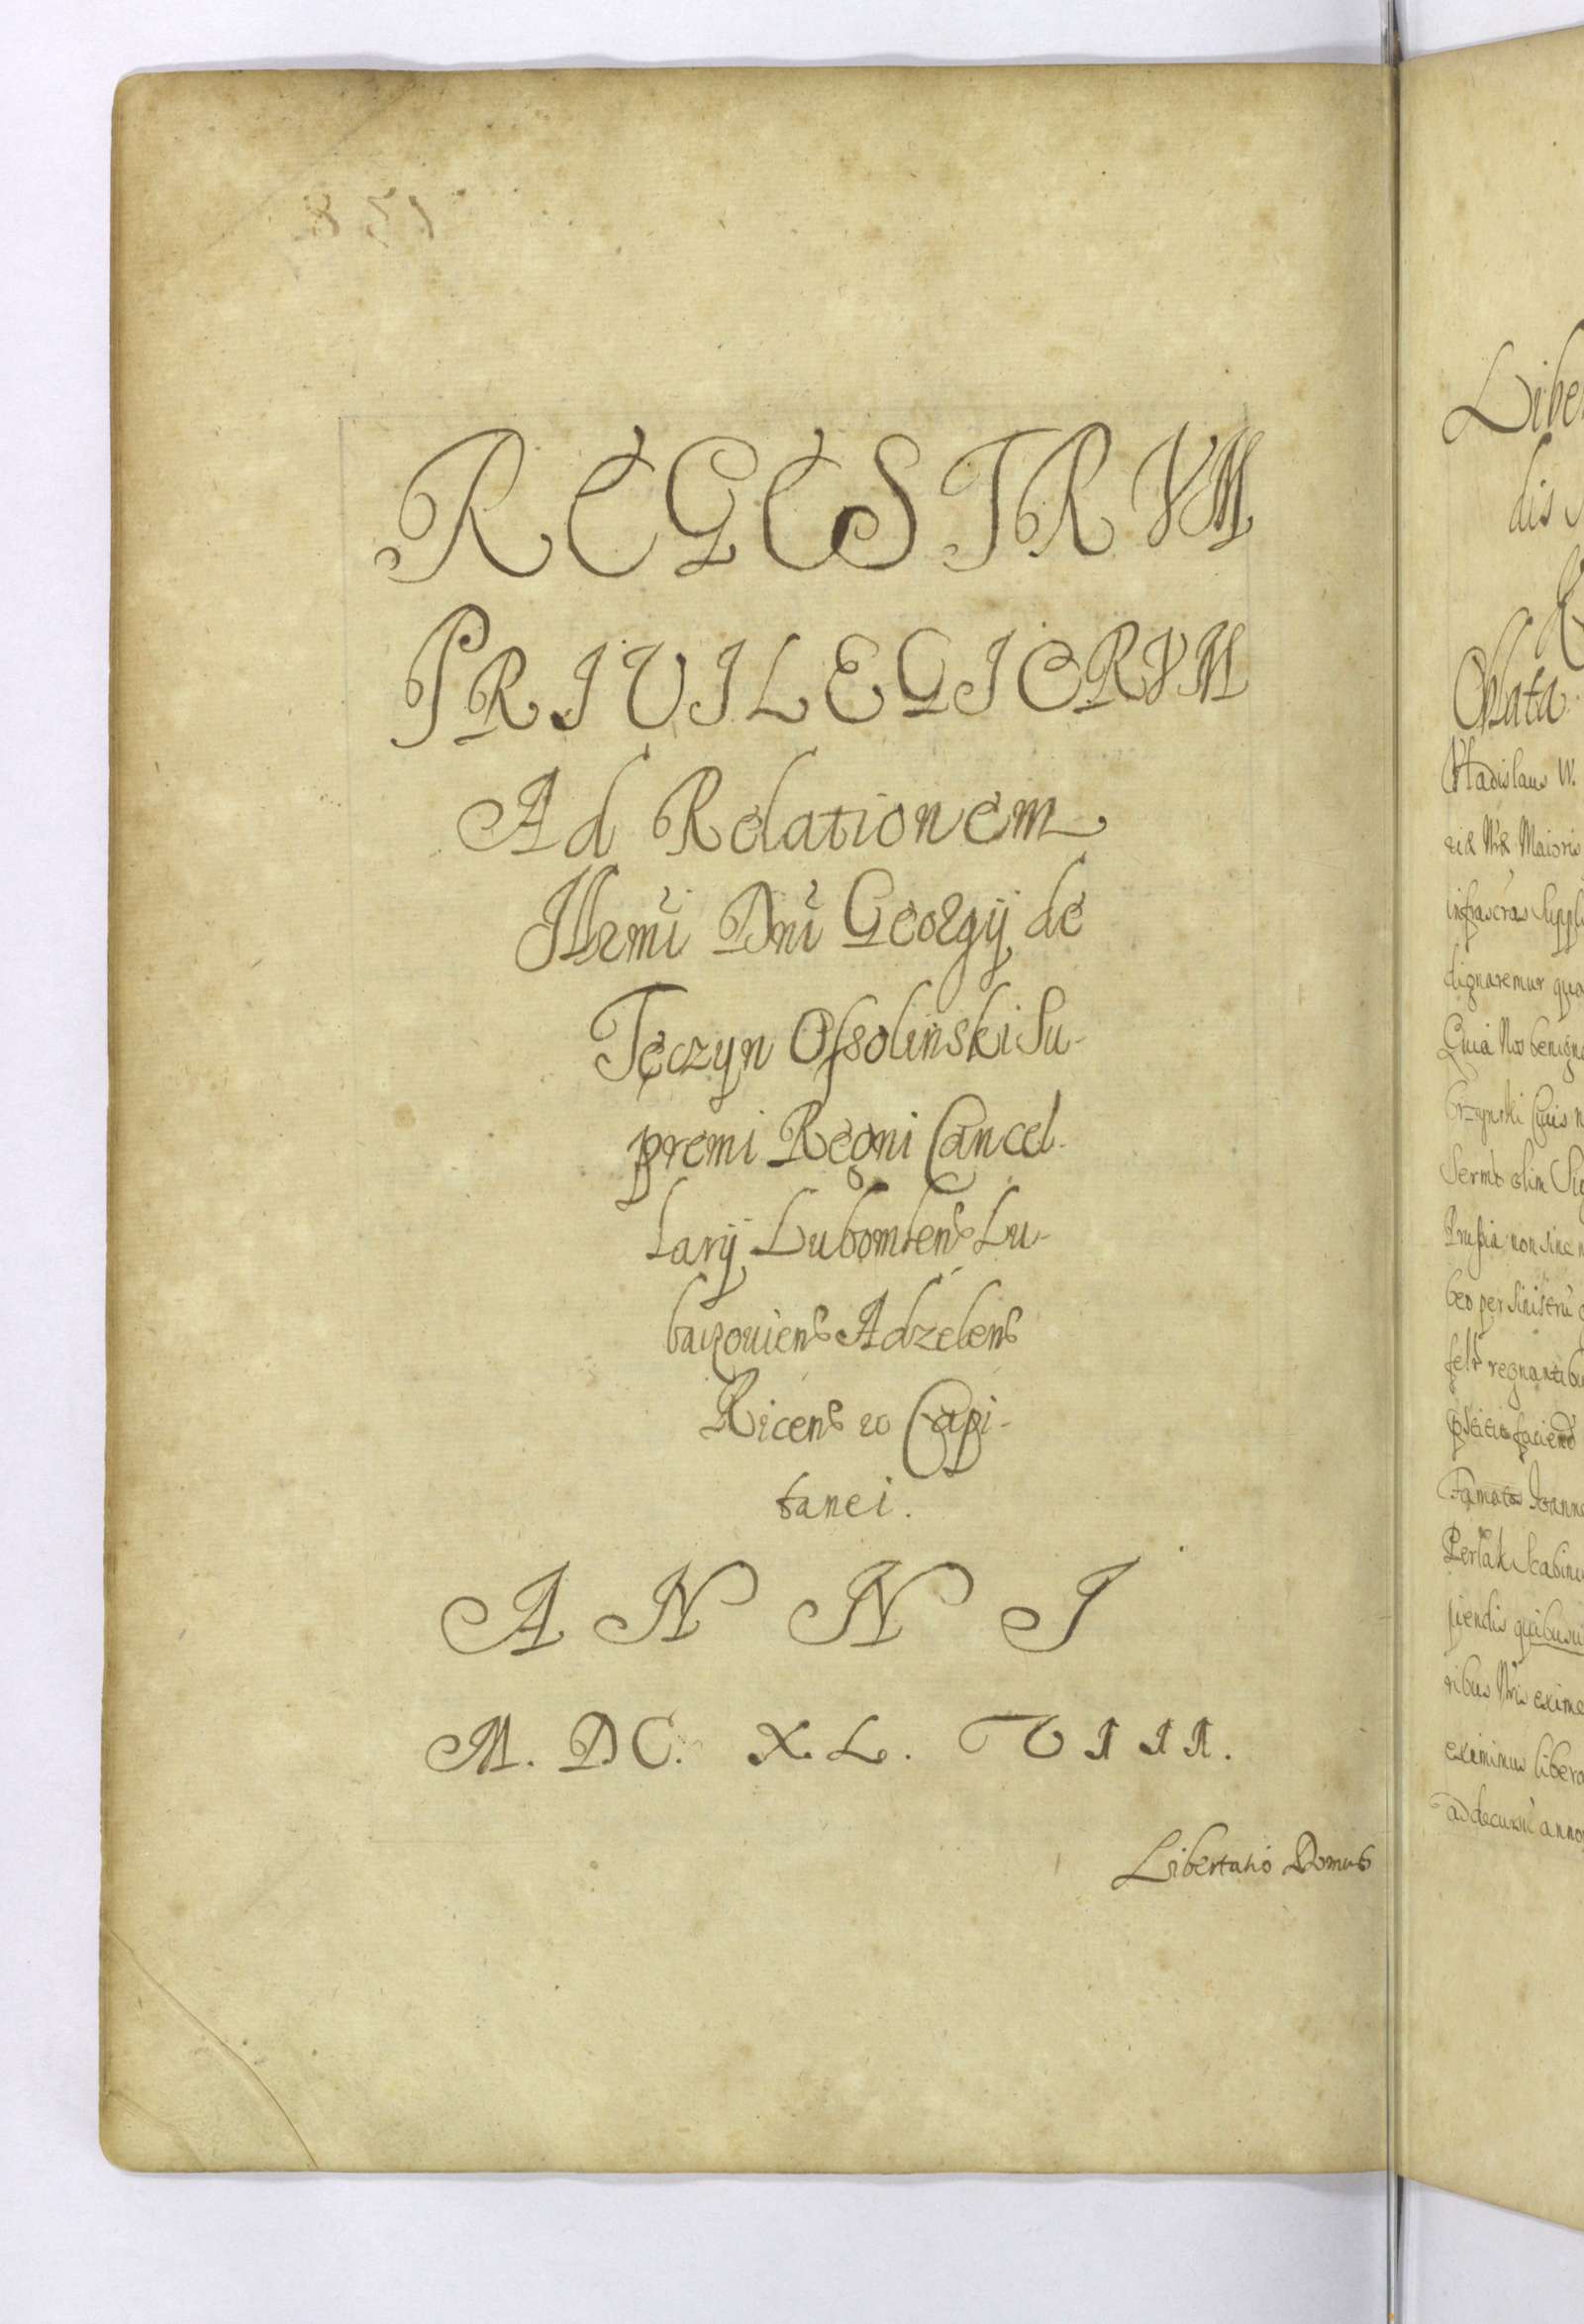 REGESTRVM
PRIVILEGIORVM
Ad Relationem
Illrmi Dni Georgij de
Tęczyn Ossolinski Su-
premi Regni Cancel-
larij Lubomlens Lu-
baczouiens Adzelens
Ricens &c Capi-
tanei.
ANNI
M. DC. XL. VIII.
Libertatio Domus
Liber
dis
Oblata
Vladislaus IV.
infrascras Suppli
dignaremur qua
Quia Nos benigne
Sermo olim Sig
Prussia non sine
beo per sinistru
regnantibu
Joanne
Scabinu
piendis quibusu
ribus Nris exime
eximimus libera
ad decursu anno